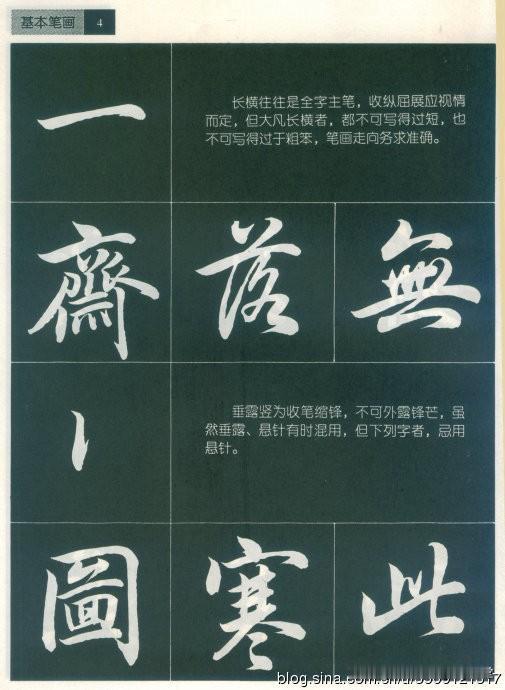 基本笔画 4
一
长横往往是全字主笔，收纵屈展应视情
而定，但大凡长横者，都不可写得过短，也
不可写得过于粗笨，笔画走向务求准确。
齋 落 無
丨
垂露竖为收笔缩锋，不可外露锋芒，虽
然垂露、悬针有时混用，但下列字者，忌用
悬针。
圖 寒 此